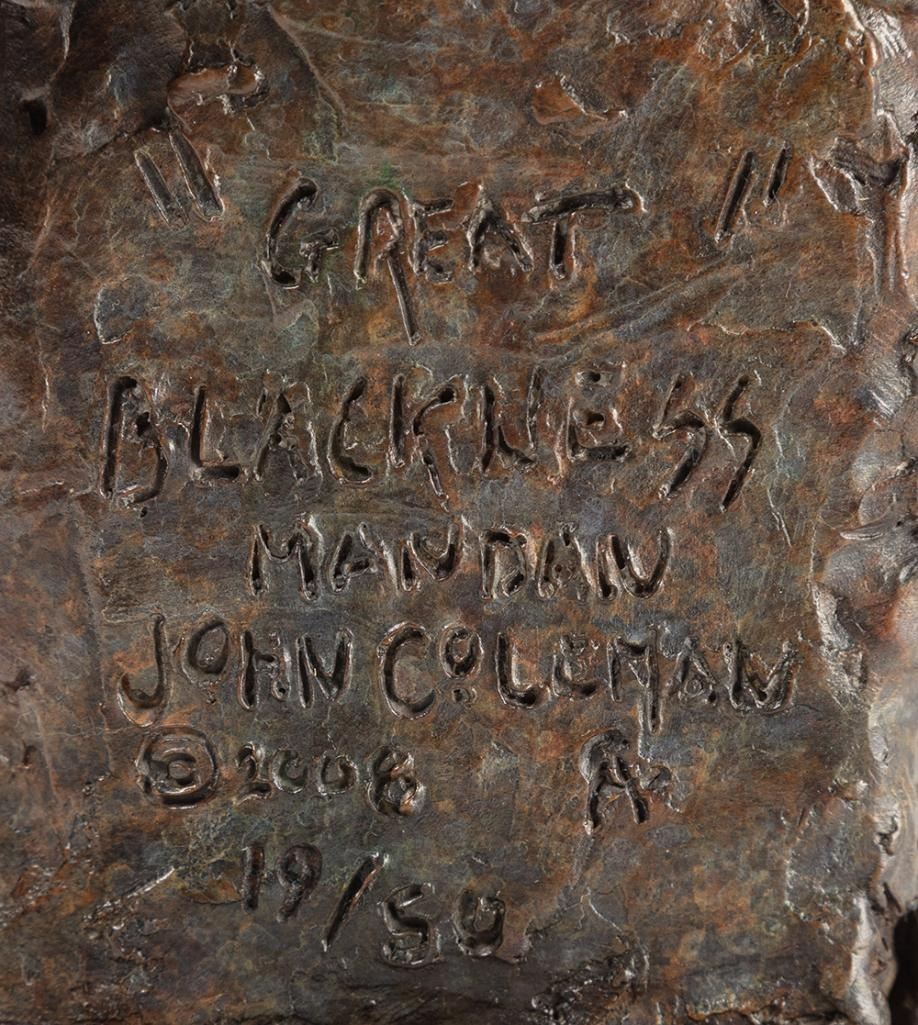 "GREAT"
BLACKNESS
MANDAN
JOHN COLEMAN
©2008 A
19/50